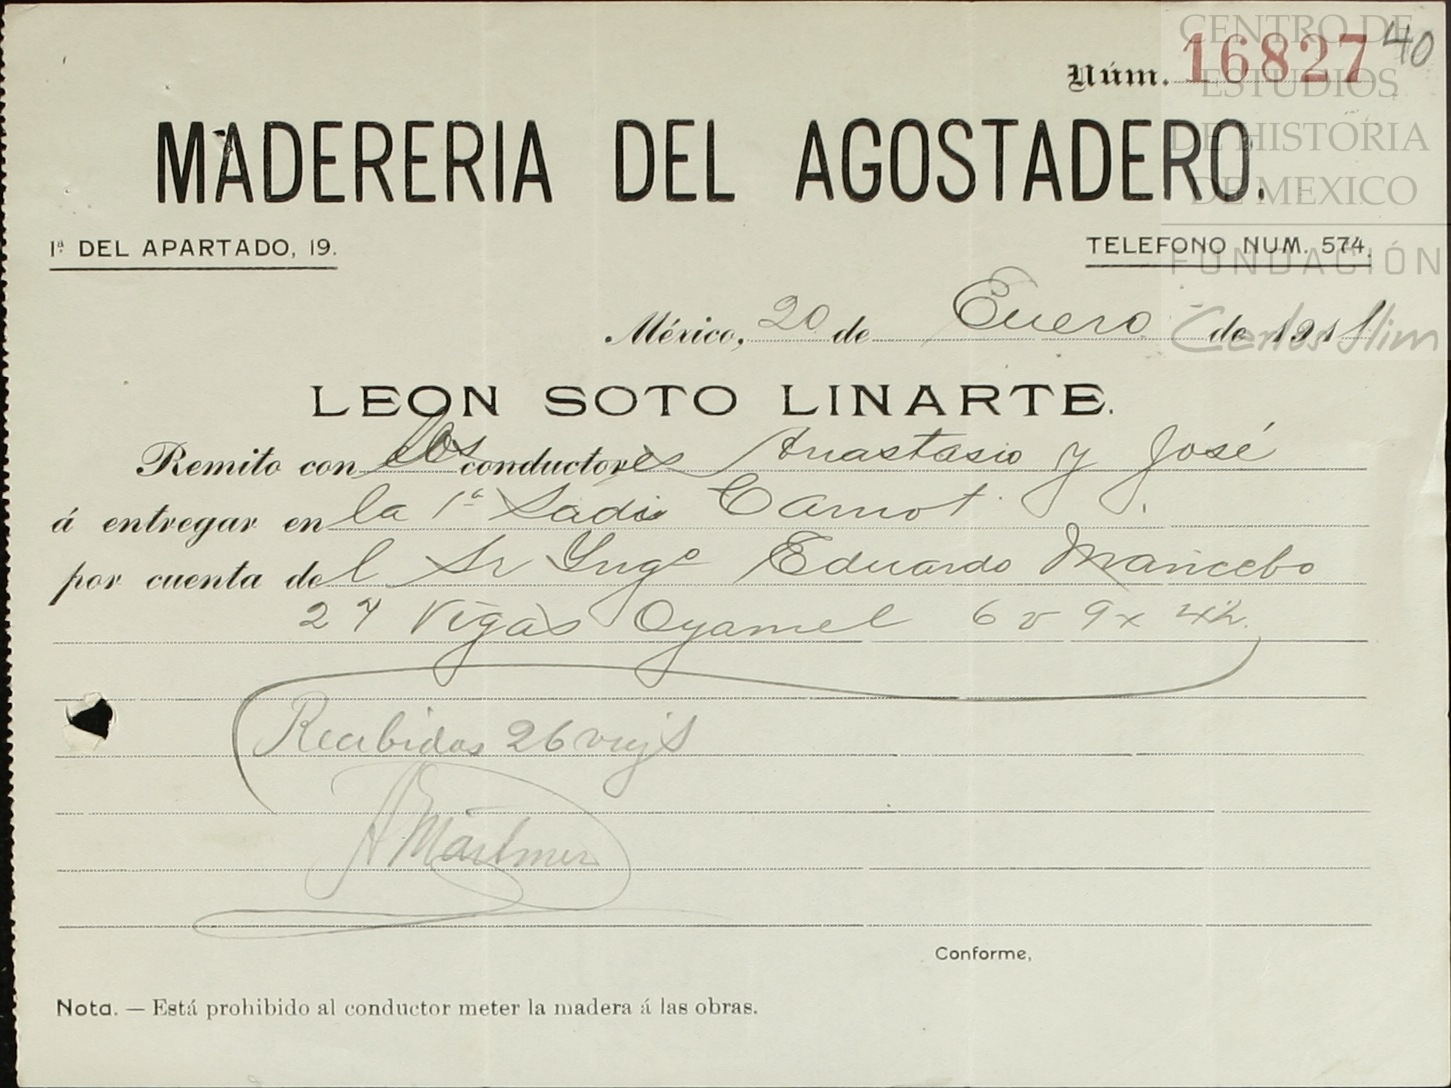 CENTRO DE
ESTUDIOS
DE HISTORIA
DE MEXICO
FUNDACIÓN
Carlos Slim
40
Núm. 16827
MADERERIA DEL AGOSTADERO.
1ª DEL APARTADO, 19.
TELEFONO NUM. 574.
México, 20 de Enero de 1911
LEON SOTO LINARTE.
Remito con los conductores Anastasio y José
á entregar en la 1ª Sadi Carnot.
por cuenta del Sr Yngº Eduardo Mancebo
27 Vigas Oyamel 6 v 9 x 4½.
Recibidas 26 vigs
Conforme,
Nota. — Está prohibido al conductor meter la madera á las obras.